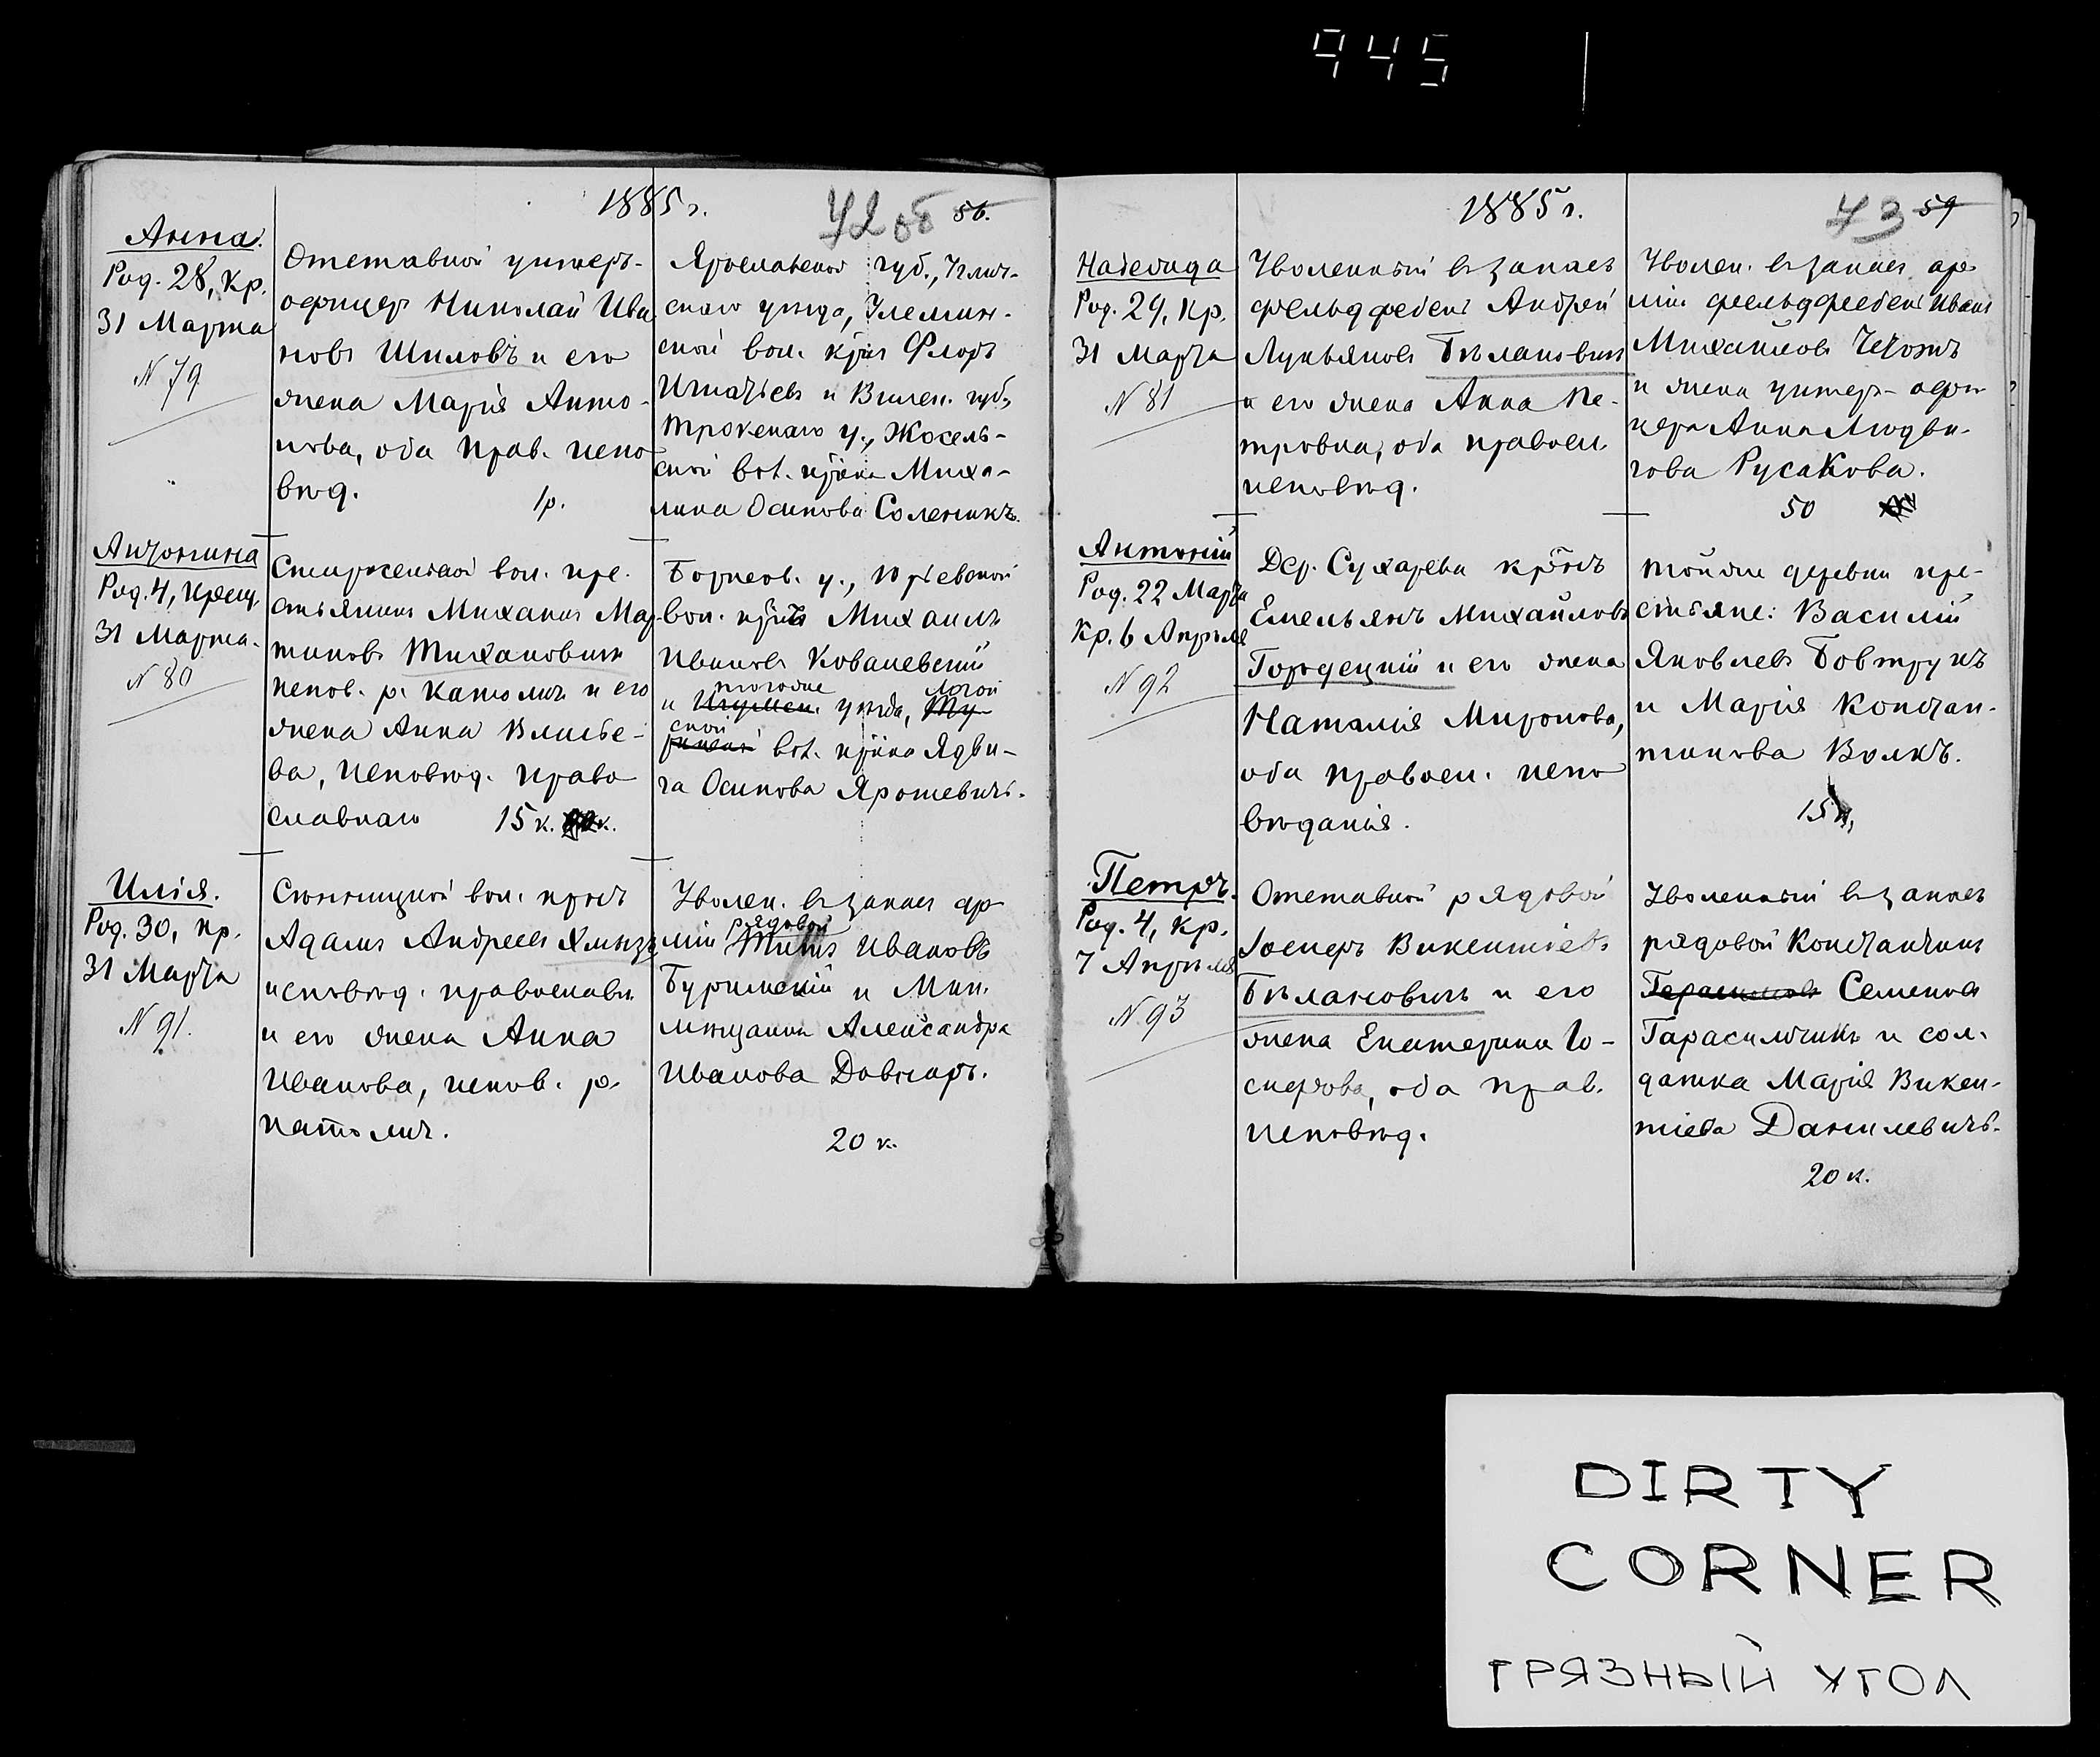 945
1885 г.
42 об
56.
Анна.
Род. 28, кр.
31 Марта
N 79
Отставной унтеръ-
офицеръ Николай Ива
новъ Шиловъ и его
жена Марія Анто-
нова, оба прав. испо
вѣд.
1р.
Ярославской губ., Углич-
скаго уѣзда,
ской вол. кр̃нъ Флоръ
Игнатьевъ и Вилен. губ.,
Трокскаго у., Жосель-
ской вол. кр̃нка Миха-
лина Осипова Соленикъ.
Антонина
Род. 4, крещ.
31 Марта.
N 80
вол. кре-
стьянинъ Михаилъ Мар-
тиновъ Тихановичъ
испов. р. католич. и его
жена Анна
ва, исповѣд. право
славнаго
15 к.
Борисов. у., Юрьевской
вол. кр̃нъ Михаилъ
Ивановъ Ковалевскій
тогоже Логой
и Игумен. уѣзда,
ской
вол. кр̃нка Ядви-
га Осипова Ярошевичъ.
Илія.
Род. 30, кр.
31 Марта
N 91.
вол. кр̃нъ
Адамъ Андреевъ
исповѣд. православн.
и его жена Анна
Иванова, испов. р.
католич.
Уволен. въ запасъ ар
рядовой
міи Ивановъ
и Мин.
мѣщанка Александра
Иванова Довнаръ.
20 к.
1885 г.
43
59
Надежда
Род. 29, кр.
31 Марта
N 81
Уволенный въ запасъ
фельдфебель Андрей
Лукьяновъ Бѣлановичъ
и его жена Анна Пе-
тровна, оба правосл.
исповѣд.
Уволен. въ запасъ ар-
міи фельдфебель Иванъ
Михайловъ
и жена унтеръ-офи-
цера Анна Людви-
гова Русакова.
50
Антоній
Род. 22 Марта
Кр. 6 Апрѣля
N 92
Дер. Сухарева кр̃нъ
Емельянъ Михайловъ
Городецкій и его жена
Наталія Миронова,
оба правосл. испо
вѣданія.
той же деревни кре-
стьяне: Василій
Яковлевъ Бовтрукъ
и Марія Констан-
тинова Волкъ.
15 к.
Петръ.
Род. 4, кр.
7 Апрѣля
N 93
Отставной рядовой
Іосифъ Викентіевъ
Бѣлановичъ и его
жена Екатерина Іо-
сифова, оба прав.
исповѣд.
Уволенный въ запасъ
рядовой Константинъ
Герасимовъ Семеновъ
Гарасимчикъ и сол-
датка Марія Викен-
тіева Данилевичъ.
20 к.
DIRTY
CORNER
ГРЯЗНЫЙ УГОЛ